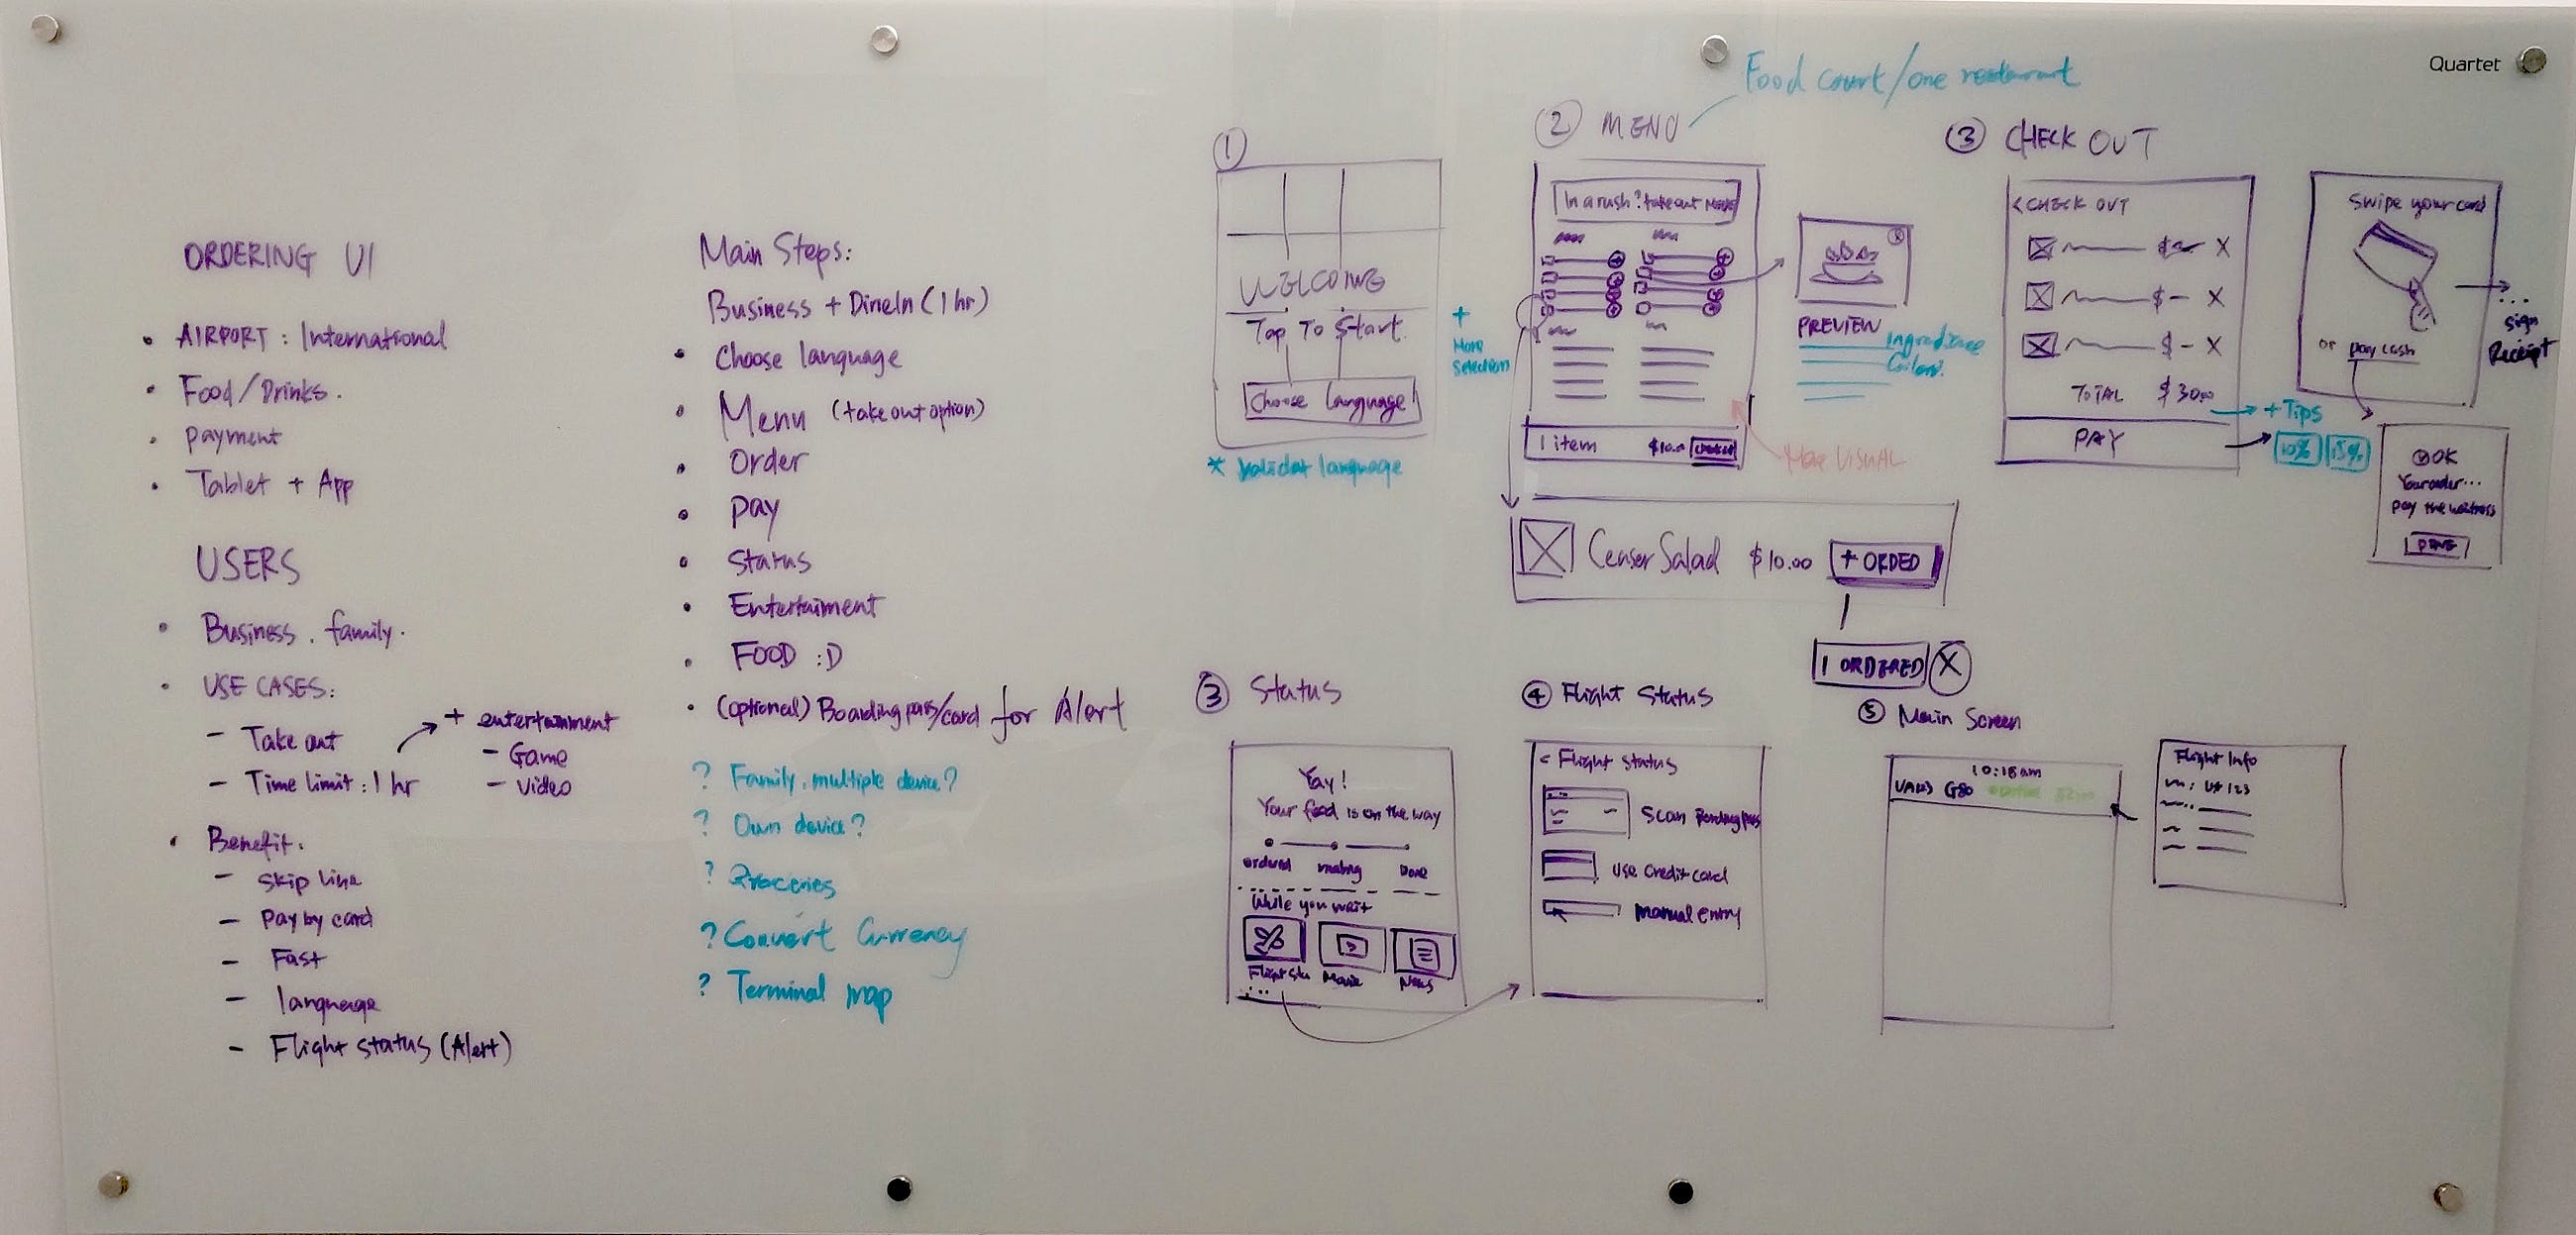 Quartet
ORDERING UI
AIRPORT : International
Food/Drinks.
Payment
Tablet + App
USERS
Business . family.
USE CASES:
- Take out
- Time limit : 1 hr
+ entertainment
- Game
- Video
Benefit.
- Skip line
- Pay by card
- Fast
- language
- Flight status (Alert)
Main Steps:
Business + DineIn (1 hr)
Choose language
Menu (take out option)
Order
Pay
Status
Entertaiment
FOOD :D
(optional) Boarding pass/card for Alert
? Family. multiple device?
? Own device?
? Groceries
? Convert Currency
? Terminal map
1
WELCOME
Tap To Start
Choose language
* Validat language
2 MENU
Food court/one restaurant
In a rush? take out
+
More
Selection
PREVIEW
More VISUAL
1 item $10.0
Ceaser Salad $10.00 + ORDED
1 ORDERED X
3 CHECK OUT
< CHECK OUT
$ - X
$ - X
$ - X
TOTAL $30.00
PAY
+ Tips
10% 15%
Swipe your card
or pay cash
...
sign
Receipt
OK
Your order...
pay the waitress
DONE
3 Status
Yay!
Your food is on the way
ordered making Done
While you wait
Movie News
4 Flight Status
< Flight Status
Scan
Use Credit card
Manual Entry
5 Main Screen
10:18am
G80
Flight Info